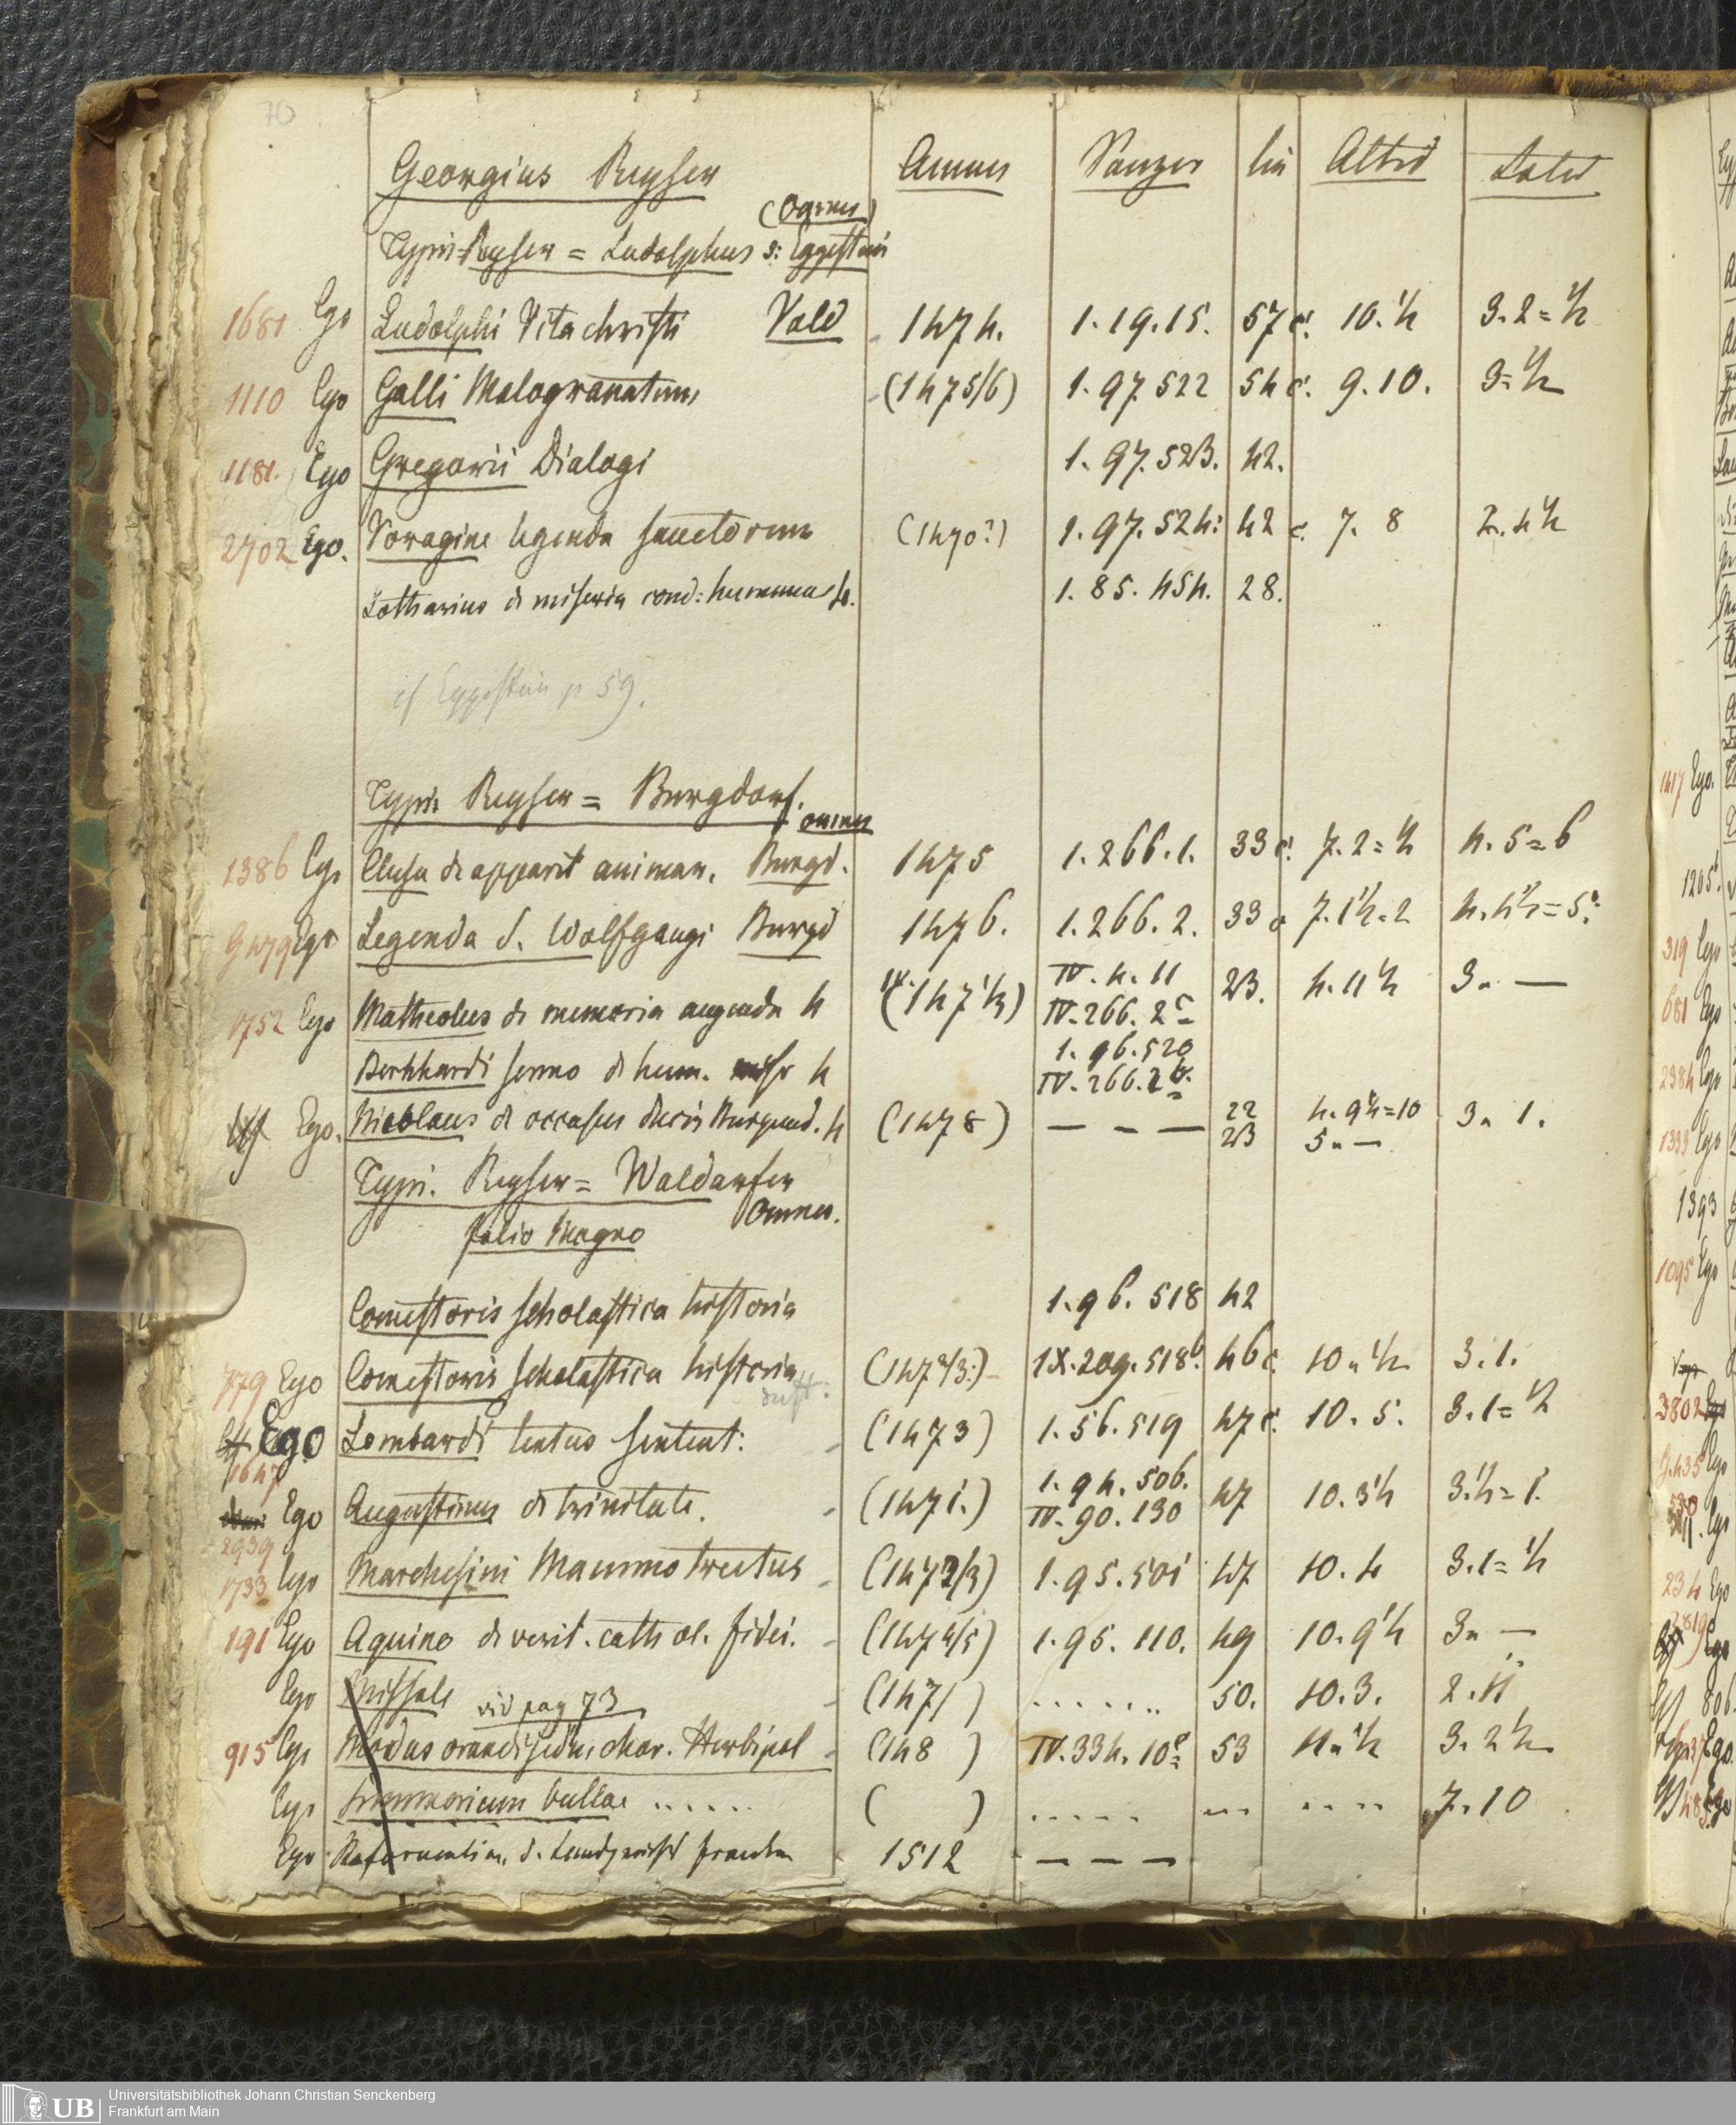 70
Georgius Reyser Annus Panzer lin Altid Latid
(Ogerius)
Typis Reyser = Ludolphus s: Eggestein
1681 Ego Ludolphi Vita christi Vald 1474. 1.19.15. 57 c. 10.½ 3.2=½
1110 Ego Galli Malogranatum (1475/6) 1.97.522 54 c. 9.10. 3=½
1181. Ego Gregorii Dialogi 1.97.523. 42.
2702 Ego. Voragine legenda sanctorum (1470?) 1.97.524: 42 c. 7. 8 2.4½
Lotharius de miseria cond: humanae 4. 1.85.454. 28.
cf Eggestein p 59.
Typis Reyser = Burgdorf.
omnes
1386 Ego Clusa de apparit animar. Burgd. 1475 1.266.1. 33 c. 7.2=½ 4.5=6
Ego Legenda S. Wolfgangi Burgd 1476. 1.266.2. 33 c 7.1½=2 4.4½=5.
1752 Ego Matheolus de memoria augenda 4 (147⅓) IV.4.11 23. 4.11½ 3. —
IV.266.2c
Bernhardi sermo de hum. miser 4 1.96.520
IV.266.2b.
Ego. Nicolaus de occasu ducis Burgund. 4 (1478) — — — 22 4.9½=10 3. 1.
23 5. —
Typi. Reyser = Waldarfer
Omnes.
folio Magno
Comestoris scholastica historia 1.96.518 42
779 Ego Comestoris scholastica historia (1472/3.) IX.209.518b 46 c 10.½ 3.1.
Ego Lombardi textus sentent: (1473) 1.56.519 47 c. 10.5. 3.1=½
1647
Ego Augustinus de trinitate. (1471.) 1.94.506. 47 10.3½ 3.½=1.
IV.90.130
2939
1733 Ego Marchesini Mammotrectus (1472/3) 1.95.501 47 10.4 3.1=½
191 Ego Aquino de verit. cathol. fidei. (1474/5) 1.95.110. 49 10.9½ 3. —
Ego Missale vid pag 73 (147/ ) ....... 50. 10.3. 2.11
915 Ego Modus orandi secdm chor. Herbipol (148 ) IV.334.10c 53 11.½ 3.2½
Ego Summarium bullae ...... ( ) ..... ... .... 7.10
Ego Reformation d. Landgericht franken 1512 — — —
UB Universitätsbibliothek Johann Christian Senckenberg
Frankfurt am Main